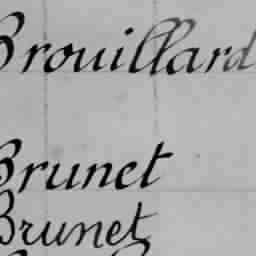 Brouillard
Brunet
Brunet